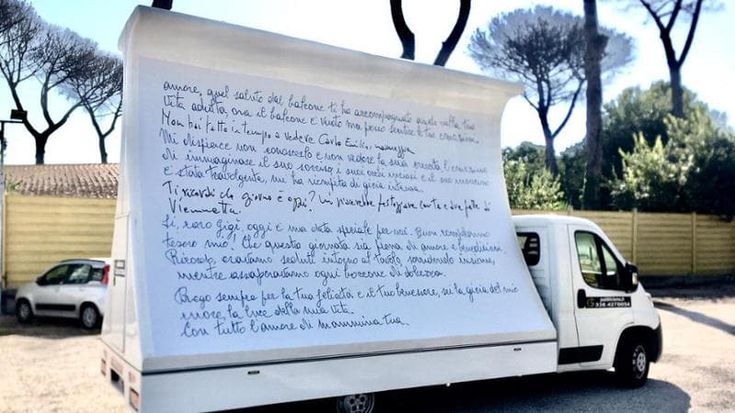 amore, quel saluto dal balcone ti ha accompagnato anche nella tua
vita adulta, ora il balcone è vuoto ma posso sentire il tuo
Non hai fatto in tempo a vedere Carlo Emilio,
Mi dispiace non conoscerlo e non vedere la sua crescita, l'emozione
di immaginare il suo sorriso, i suoi occhi
è stata travolgente, mi ha riempita di gioia intensa.
Ti ricordi che giorno è oggi? Mi piacerebbe festeggiare con te e due fette di
Viennetta.
Sì, caro gigi, oggi è una data speciale per noi. Buon compleanno
tesoro mio! Che questa giornata sia piena di amore e benedizioni.
Ricordo, eravamo seduti intorno al tavolo, sorridendo insieme,
mentre assaporavamo ogni boccone di dolcezza.
Prego sempre per la tua felicità e il tuo benessere, sei la gioia del mio
cuore, la luce della mia vita.
Con tutto l'amore di mammina tua.